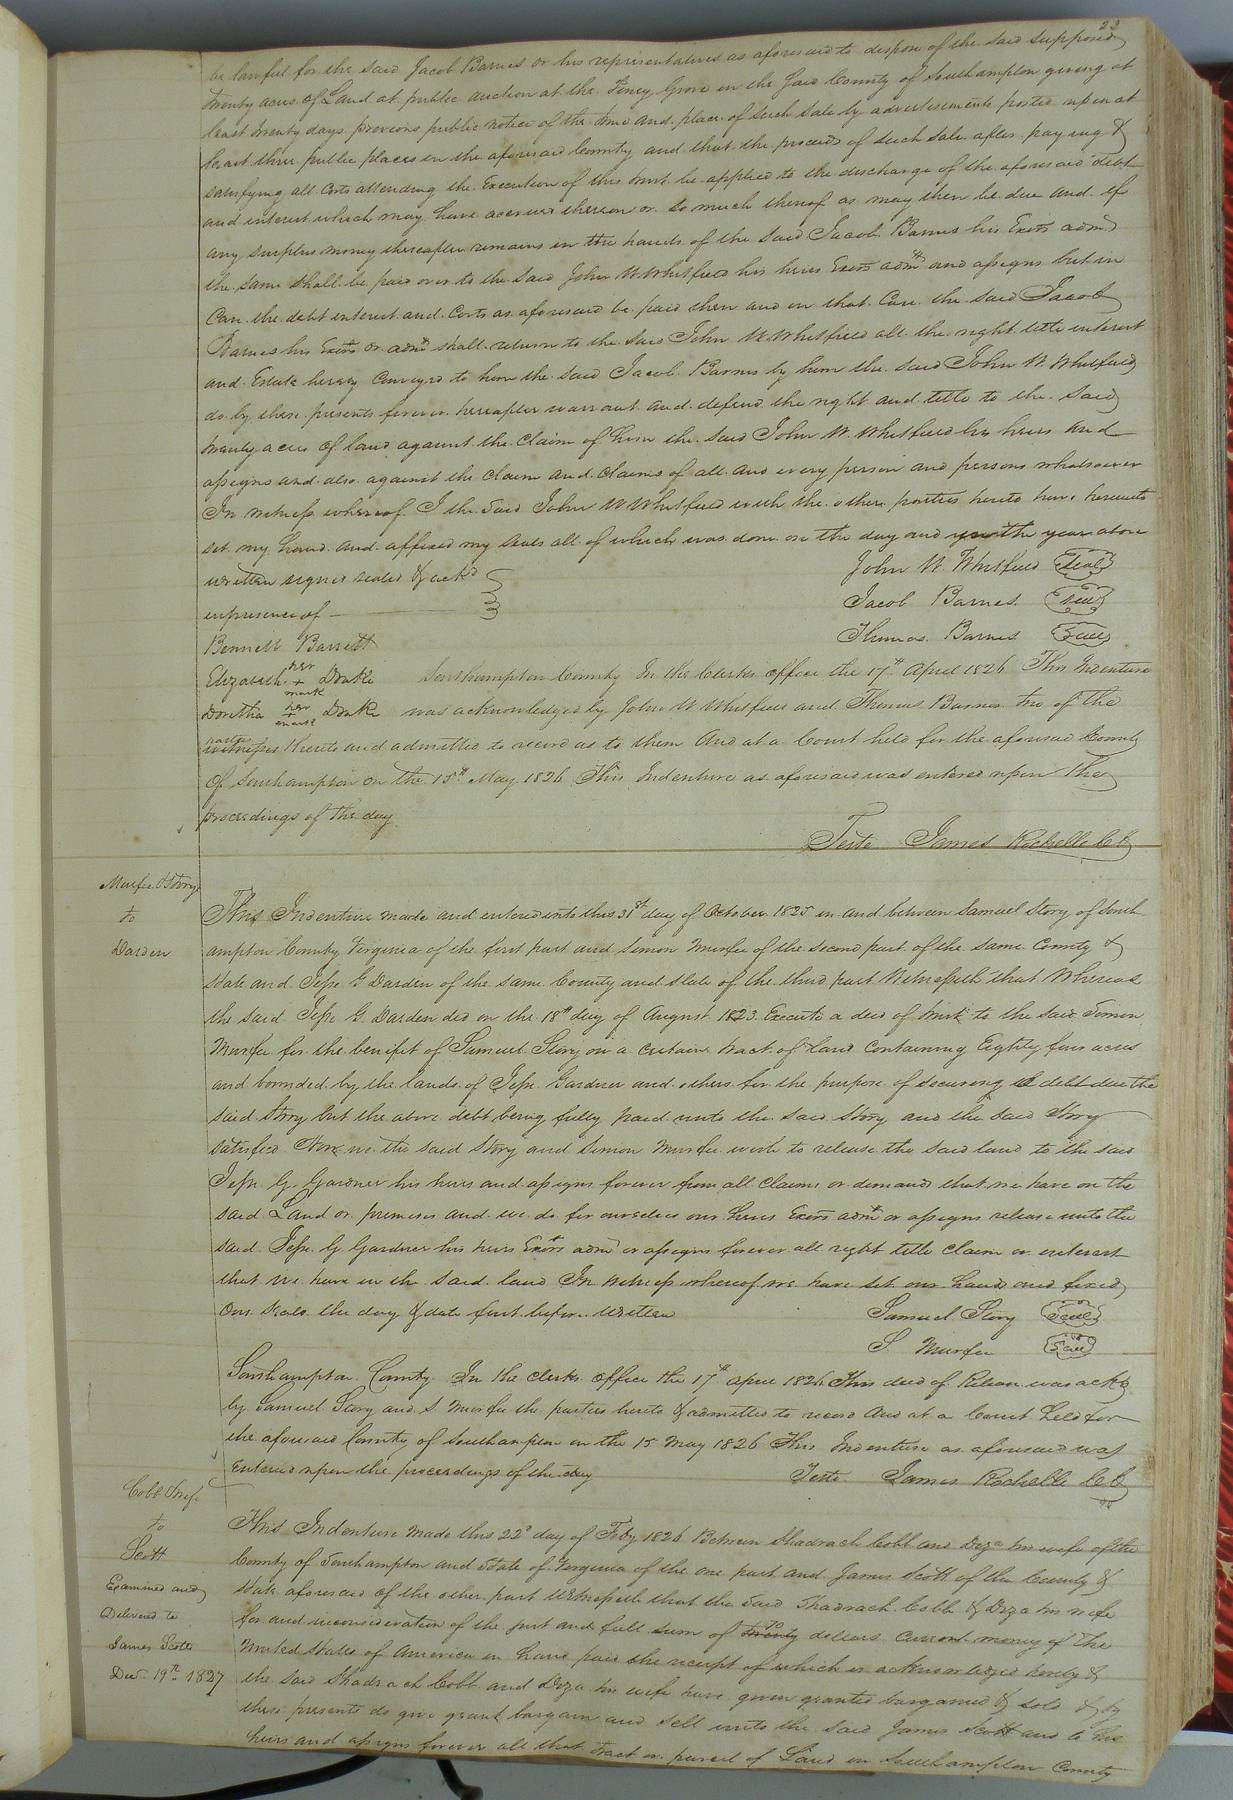 23
be lawful for the said Jacob Barnes or his representatives as aforesaid to dispose of the said supposed
twenty acres of Land at public auction at the Piney Grove in the said County of Southampton giving at
least twenty days previous public notice of the time and place of such sale by advertisements posted up in at
least three public places in the aforesaid County and that the proceeds of such sale after paying &
satisfying all Costs attending the Execution of this trust be applied to the discharge of the aforesaid debt
and interest which may have accrued thereon or so much thereof as may then be due and if
any surplus money thereafter remains in the hands of the said Jacob Barnes his Exors admd
the same shall be paid over to the said John W Whitfield his heirs Exors admrs and assigns but in
Case the debt interest and Costs as aforesaid be paid then and in that Case the said Jacob
Barnes his Exors or admrs shall return to the said John W Whitfield all the right title interest
and Estate hereby Conveyed to him the said Jacob Barnes by him the said John W. Whitfield
do by these presents forever hereafter warrant and defend the right and title to the said
twenty acres of land against the Claim of him the said John W. Whitfield his heirs and
assigns and also against the claim and claims of all and every person and persons whatsoever
In witness whereof I the said John W Whitfield with the other parties hereto have hereunto
set my hand and affixed my seals all of which was done on the day and the year above
written signed sealed & ackd
in presence of
John W. Whitfield Seal
Jacob Barnes Seal
Thomas Barnes Seal
Bennett Barrett
Elizabeth her + mark Drake Southampton County In the Clerks office the 17th April 1826 This Indenture
Doretha her + mark Drake was acknowledged by John W Whitfield and Thomas Barnes two of the
parties witnesses thereto and admitted to record as to them And at a Court held for the aforesaid County
of Southampton on the 15th May 1826 This Indenture as aforesaid was entered upon the
proceedings of the day
Teste James Rochelle CC
Murfee & Story
to
Darden
This Indenture made and entered into this 31st day of October 1825 in and between Samuel Story of South
ampton County Virginia of the first part and Simon Murfee of the second part of the same County &
State and Jesse G Darden of the same County and State of the third part Witnesseth that Whereas
the said Jesse G. Darden did on the 18th day of August 1823 Execute a deed of trust to the said Simon
Murfee for the benifit of Samuel Story on a certain tract of land Containing Eighty four acres
and bounded by the lands of Jesse Gardner and others for the purpose of securing a debt due the
said Story but the above debt being fully paid unto the said Story and the said Story
satisfied Now we the said Story and Simon Murfee wish to release the said land to the said
Jesse G. Gardner his heirs and assigns forever from all Claims or demands that we have on the
said Land or premises and we do for ourselves our heirs Exors admrs or assigns release unto the
said Jesse G Gardner his heirs Exors admrs or assigns forever all right title claim or interest
that we have in the said land In witness whereof we have set our hands and fixed
our seals the day & date first before written
Samuel Story Seal
S. Murfee Seal
Southampton County In the Clerks Office the 17th April 1826 This deed of Release was ackd
by Samuel Story and S Murfee the parties hereto & admitted to record And at a Court held for
the aforesaid County of Southampton on the 15 May 1826 This Indenture as aforesaid was
Entered upon the proceedings of the day
Teste James Rochelle CC
Cobb & wife
to
Scott
Examined and
Delivered to
James Scott
Decr. 19th 1827
This Indenture made this 22d day of Feby 1826 Between Shadrach Cobb and Diza his wife of the
County of Southampton and State of Virginia of the one part and James Scott of the County &
State aforesaid of the other part Witnesseth that the said Shadrach Cobb & Diza his wife
for and in consideration of the just and full sum of twenty 70 dollars Current money of the
United States of America in hand paid the receipt of which is acknowledged hereby &
the said Shadrach Cobb and Diza his wife have given granted bargained & sold & by
these presents do give grant bargain and sell unto the said James Scott and to his
heirs and assigns forever all that tract or parcel of Land in Southampton County